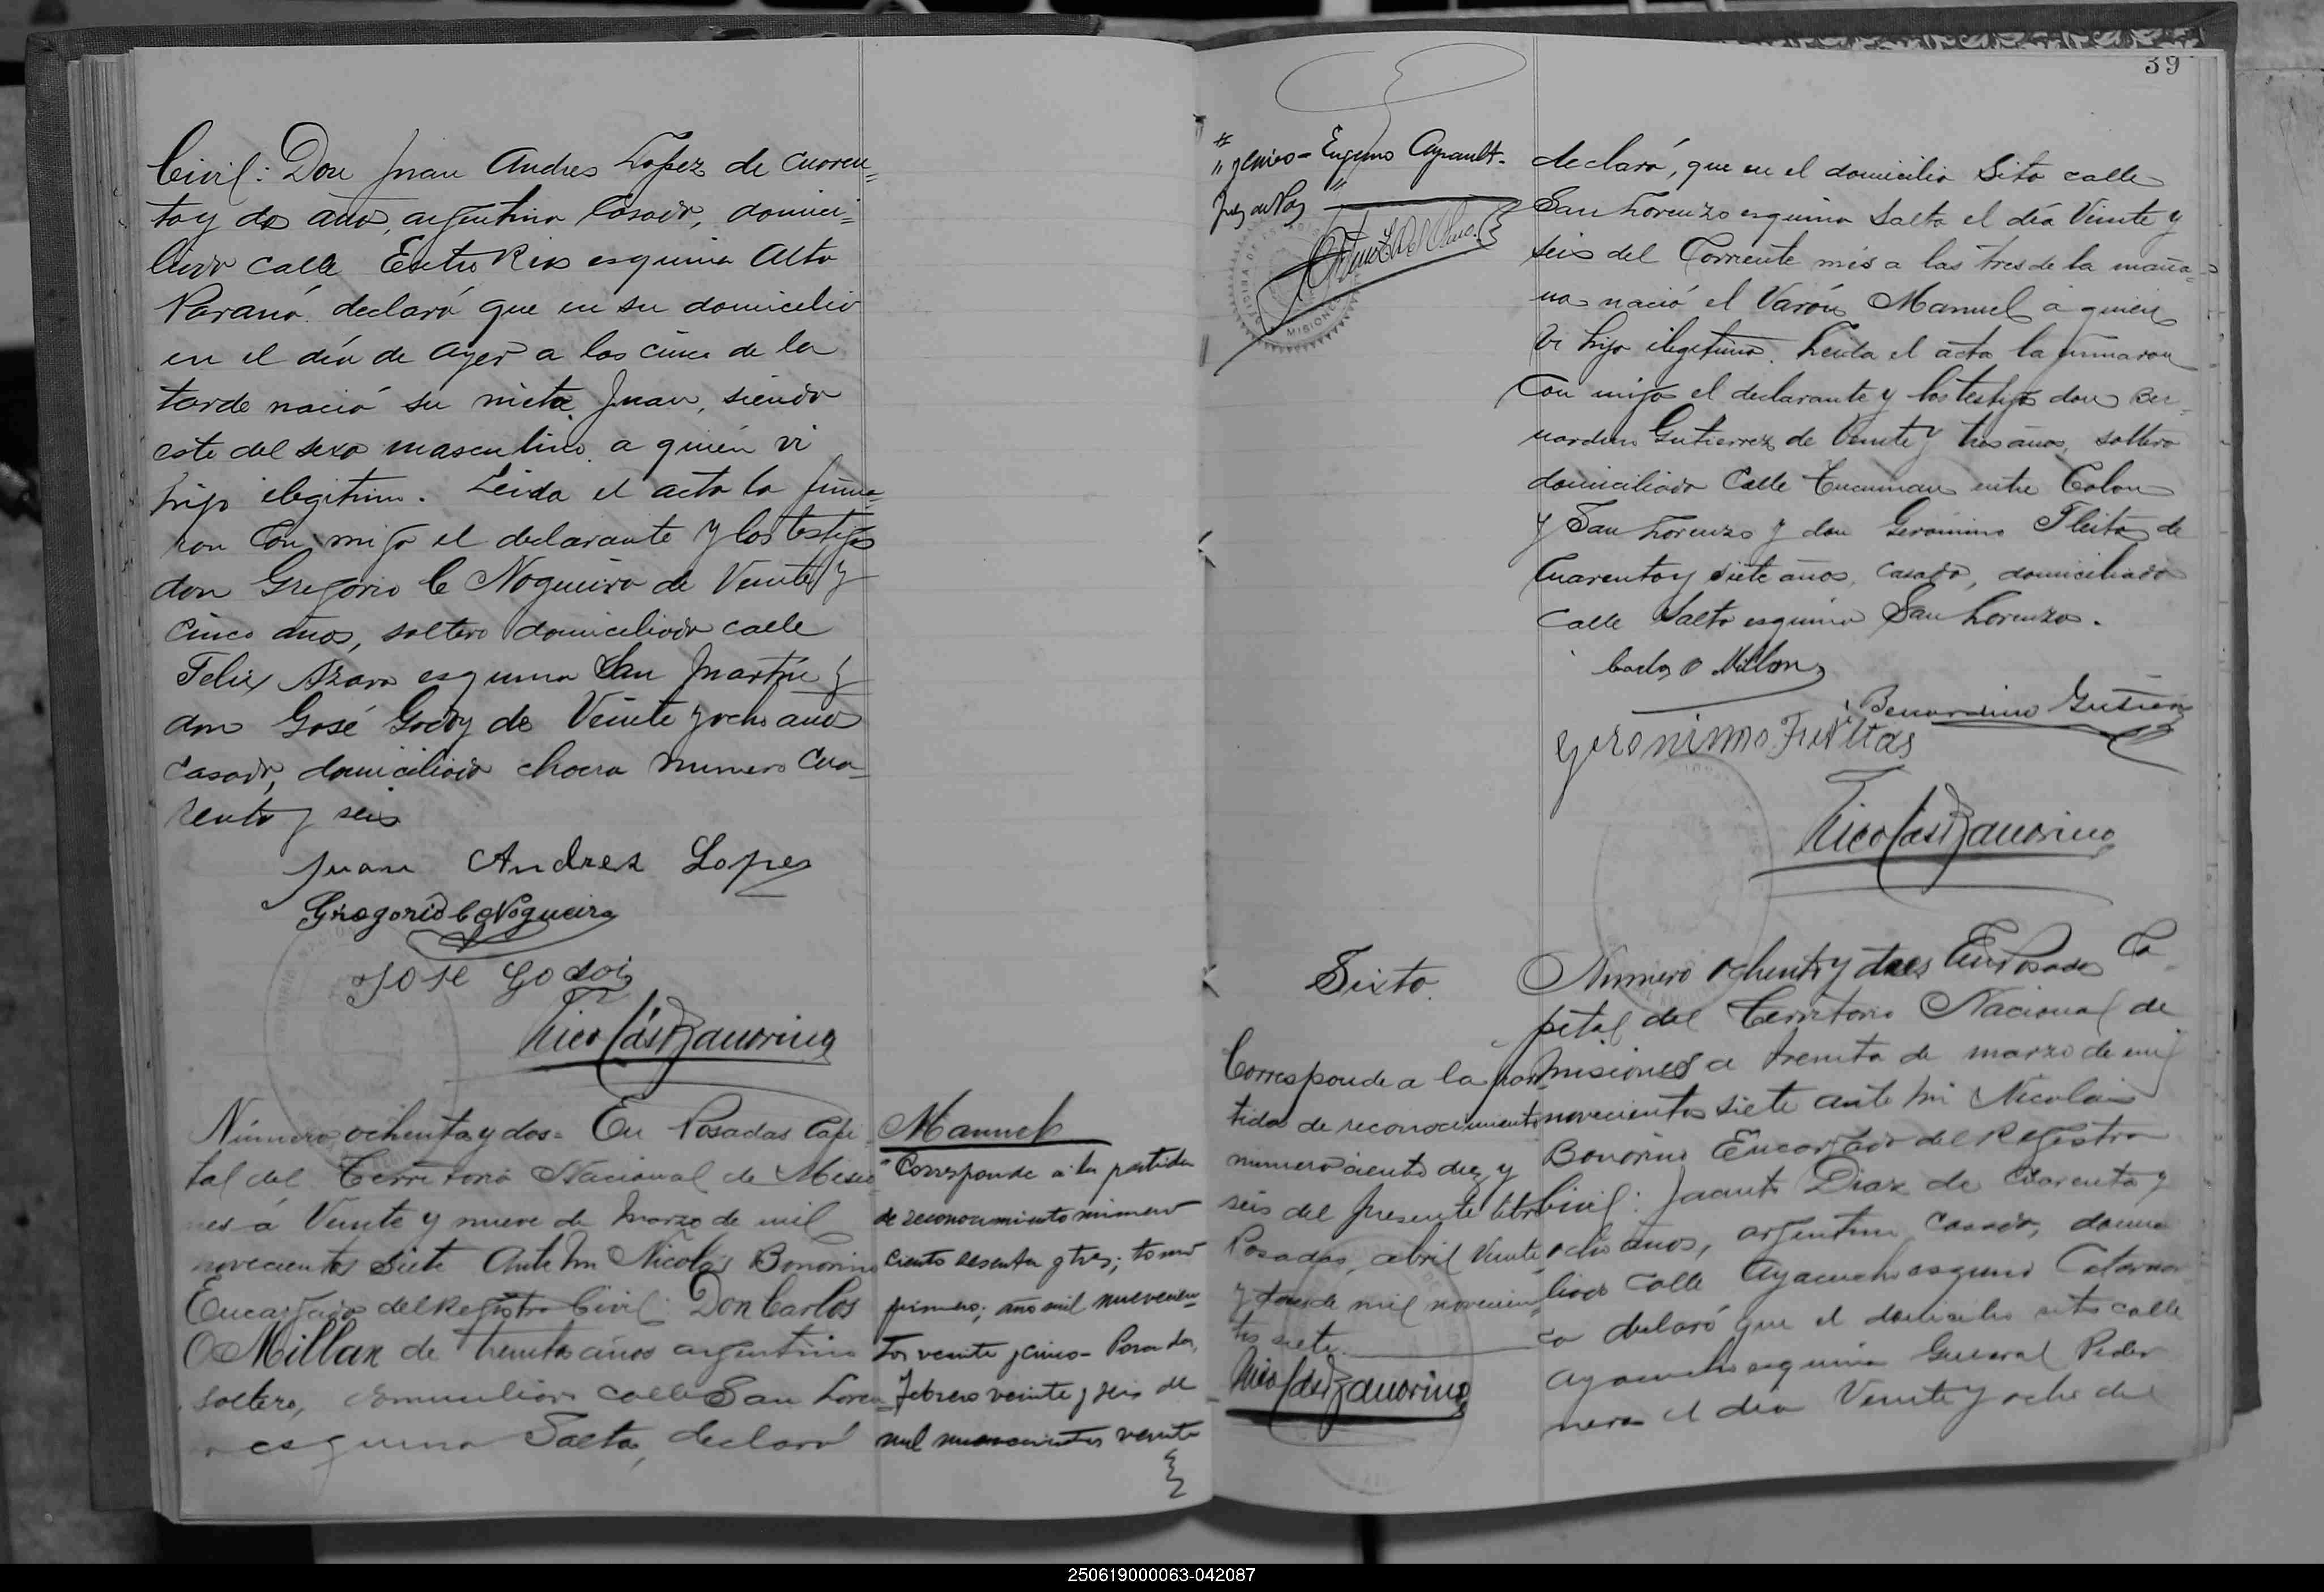 Civil: Don Juan Andres Lopez de cuaren=
ta y dos años, argentino casado, domici=
liado calle Entre Rios esquina Alto
Paraná declaró que en su domicilio
en el día de ayer a las cinco de la
tarde nació su nieto Juan, siendo
este del sexo masculino a quién vi
hijo ilegitimo. Leida el acta la firma=
ron con migo el declarante y los testigos
don Gregorio C Nogueira de Veinte y
cinco años, soltero domiciliado calle
Felix Azara esquina San Martín y
don José Godoy de Veinte y ocho años
casado, domiciliado chacra numero cua-
renta y seis
Juan Andres Lopes
Gregorio C Nogueira
Jose Godoi
Nicolás Bonorino
Número ochenta y dos = En Posadas Capi
tal del Territorio Nacional de Misio
nes á Veinte y nueve de Marzo de mil
novecientos siete Ante mi Nicolás Bonorino
Encargado del Registro Civil: Don Carlos
O Millan de treinta años argentino
soltero, domiciliado calle San Loren
esquina Salta, declaró
Manuel
"Corresponde a la partida
de reconocimiento número
ciento sesenta y tres; tomo
primero; año mil novecien-
tos veinte y cinco - Posadas,
Febrero veinte y seis de
mil novecientos veinte
39
"y cinco - Eugenio Ayrault-
Juez de Paz "
declaró, que en el domicilio sito calle
San Lorenzo esquina Salta el día Veinte y
seis del Corriente mes a las tres de la maña=
na nació el Varón Manuel a quien
vi hijo ilegitimo. Leida el acta la firmaron
con migo el declarante y los testigos don Ber=
nardino Gutierrez de Veinte y tres años, soltero
domiciliado Calle Tucuman entre Colon
y San Lorenzo y don Geronimo Fleitas de
Cuarenta y siete años, casado, domiciliado
Calle Salta esquina San Lorenzo.
Carlos O Millan
Bernardino Gutierrez
Geronimo Fleitas
Nicolás Bonorino
Sixto.
Corresponde a la par-
tida de reconocimiento
numero ciento diez y
seis del presente libro
Posadas, abril Veinte
y dos de mil novecien
tos siete
Nicolás Bonorino
Numero ochenta y tres En Posadas Ca
pital del Territorio Nacional de
Misiones a treinta de marzo de mil
novecientos siete ante mi Nicolás
Bonorino Encargado del Registro
Civil: Jacinto Diaz de cuarenta y
ocho años, argentino casado, domici
liado calle Ayacucho esquina Catamar
ca declaró que el domicilio sito calle
Ayacucho esquina General Peder
nera el día Veinte y ocho del